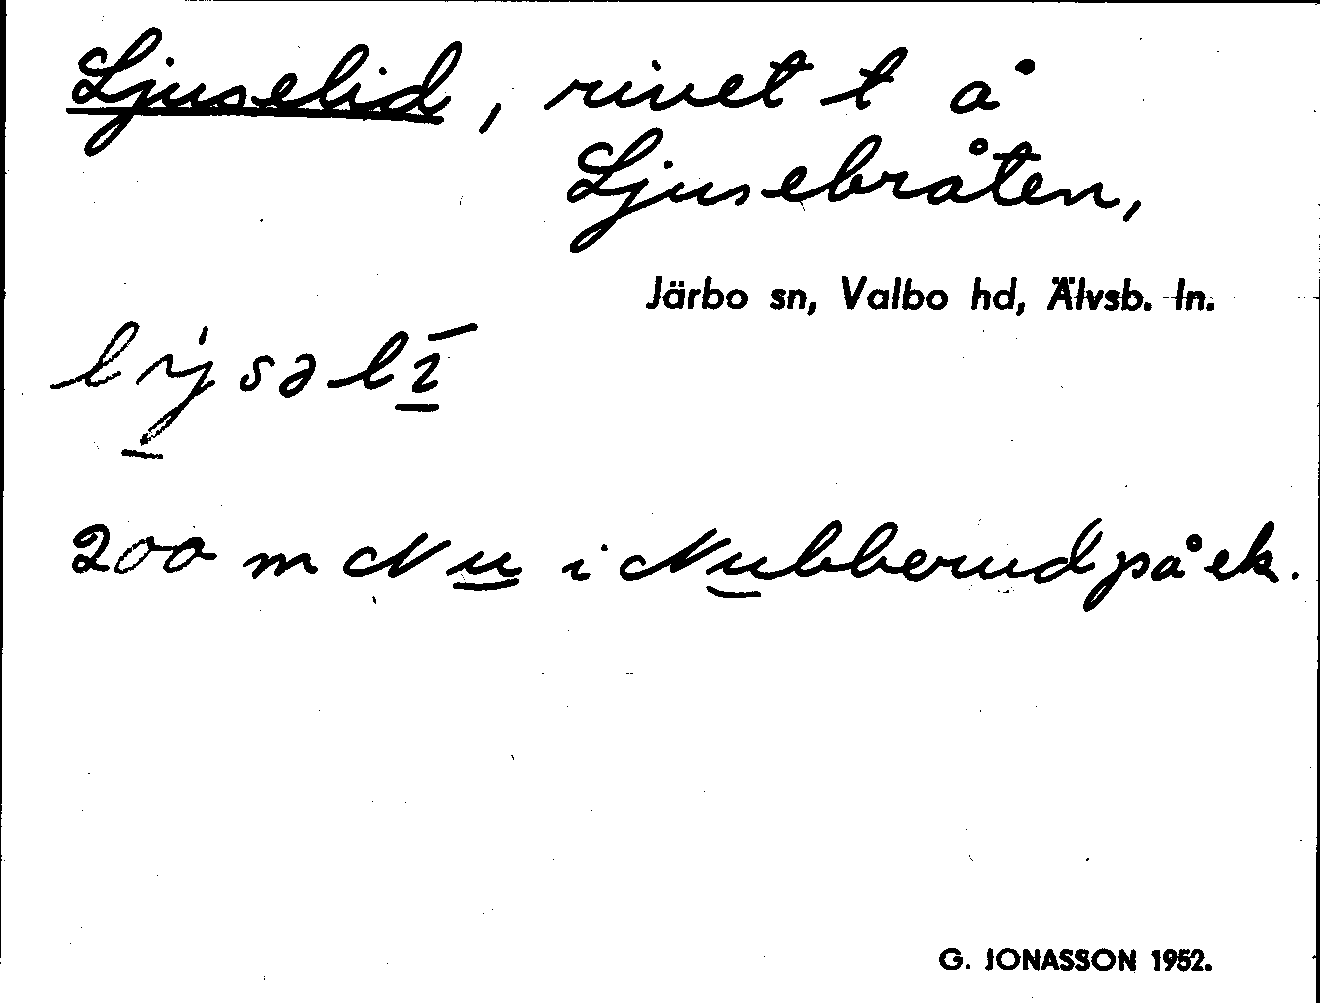 Ljuselid, rivet t på
Ljusebråten,
Järbo sn, Valbo hd, Älvsb. ln.
200 m N u i Nubberud på ek.
G. JONASSON 1952.